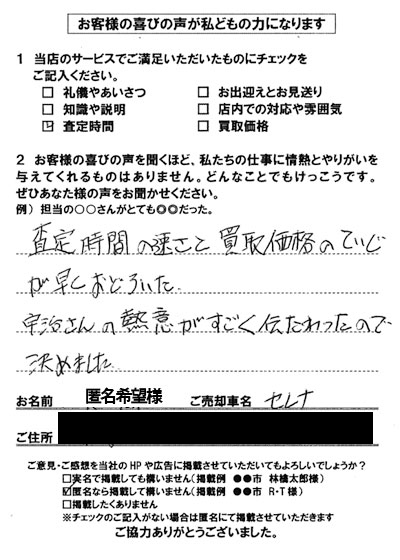 お客様の喜びの声が私どもの力になります
1 当店のサービスでご満足いただいたものにチェックを
ご記入ください。
□ 礼儀やあいさつ □ お出迎えとお見送り
□ 知識や説明 □ 店内での対応や雰囲気
☑ 査定時間 □ 買取価格
2 お客様の喜びの声を聞くほど、私たちの仕事に情熱とやりがいを
与えてくれるものはありません。どんなことでもけっこうです。
ぜひあなた様の声をお聞かせください。
例）担当の○○さんがとても◎◎だった。
査定時間の速さと買取価格のていじ
が早くおどろいた
宇治さんの熱意がすごく伝わったので
決めました
お名前 匿名希望様 ご売却車名 セレナ
ご住所
ご意見・ご感想を当社のHPや広告に掲載させていただいてもよろしいでしょうか？
□実名で掲載しても構いません（掲載例 ●●市 林檎太郎様）
☑匿名なら掲載して構いません（掲載例 ●●市 R・T様）
□掲載したくありません
※チェックのご記入がない場合は匿名にて掲載させていただきます
ご協力ありがとうございました。